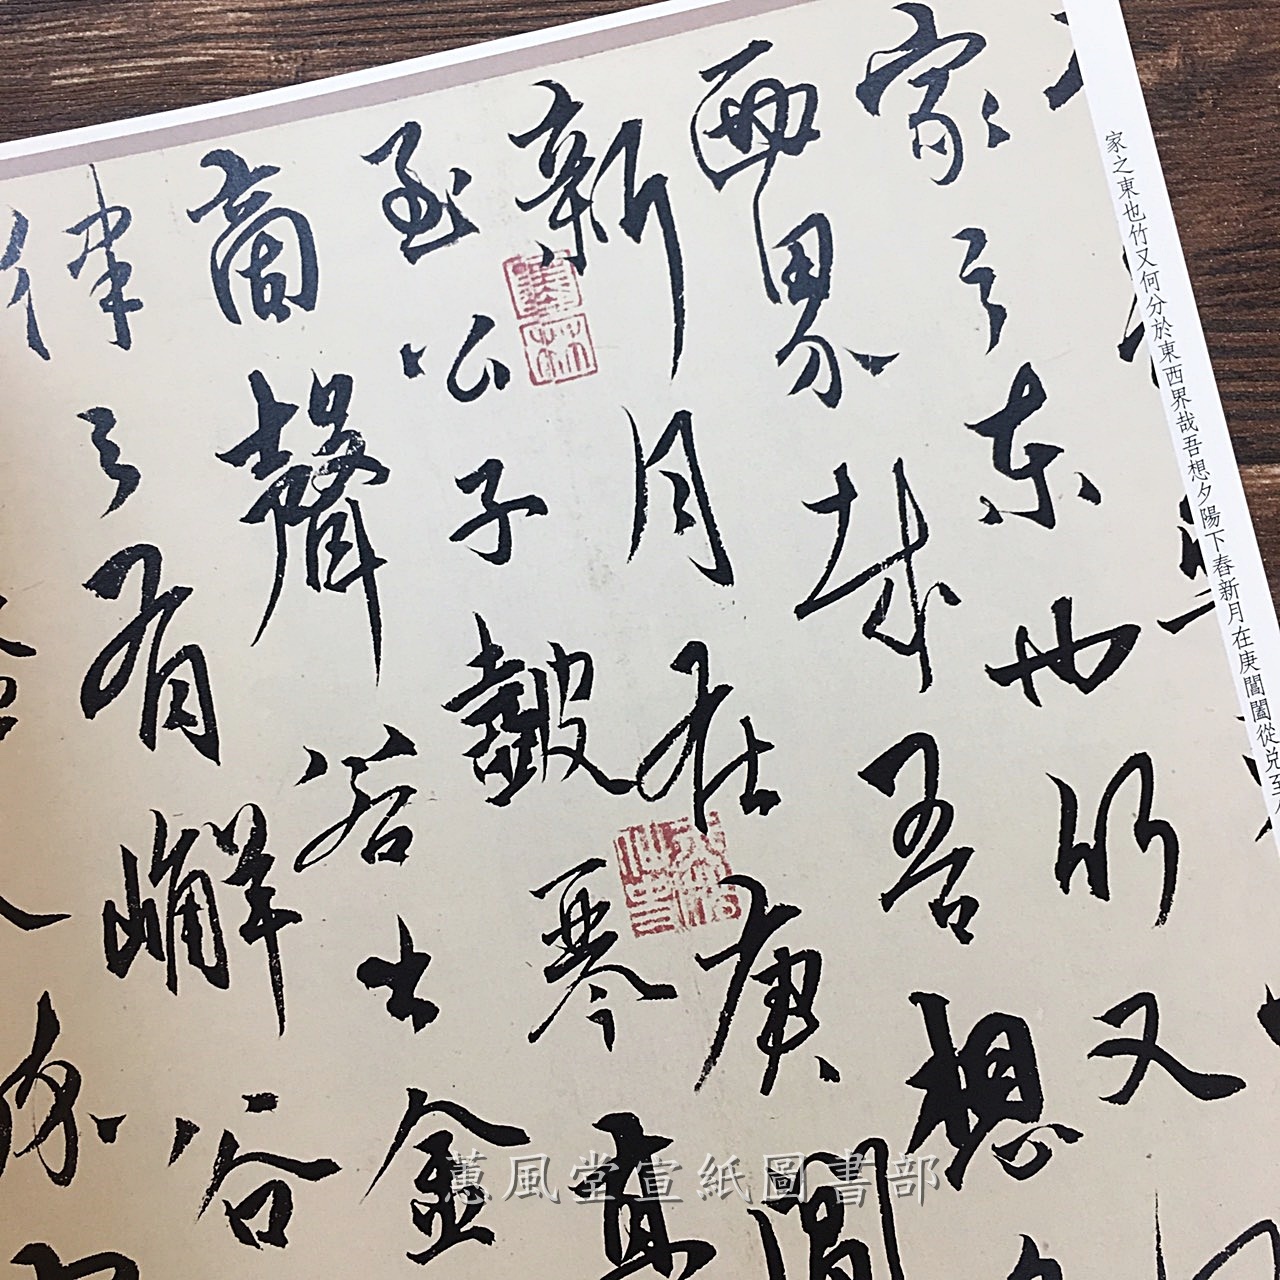 家之東也竹又何分於東西界哉吾想夕陽下舂新月在庚閶闔從兌至
家之東也竹又
西界哉吾想夕
新月在庚閶
至公子皷琴
商聲若出金
律之有嶰谷
墨林
蕙風堂宣紙圖書部